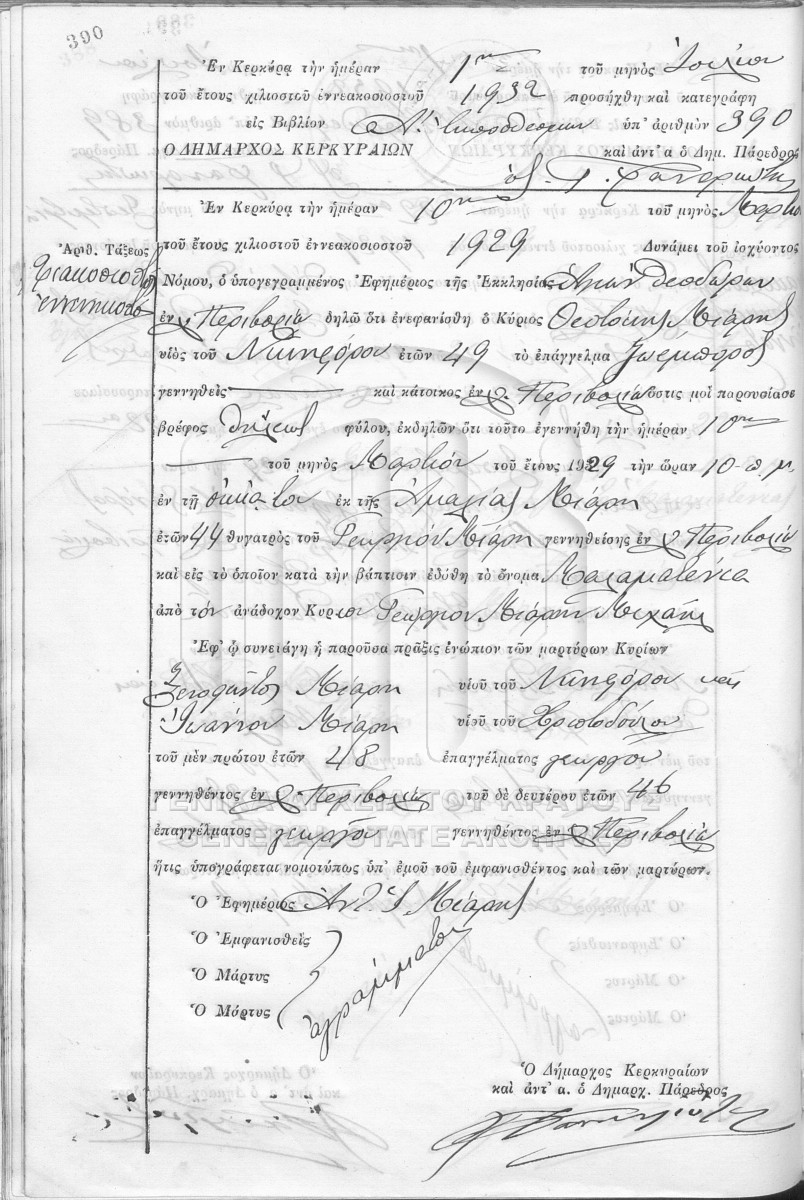 390
Ἐν Κερκύρᾳ τὴν ἡμέραν 1ην τοῦ μηνὸς Ἰουλίου
τοῦ ἔτους χιλιοστοῦ ἐννεακοσιοστοῦ 1932 προσήχθη καὶ κατεγράφη
εἰς Βιβλίον ὑπ' ἀριθμὸν 390
Ο ΔΗΜΑΡΧΟΣ ΚΕΡΚΥΡΑΙΩΝ καὶ ἀντ' α ὁ Δημ. Πάρεδρος
Ἐν Κερκύρᾳ τὴν ἡμέραν 10ην τοῦ μηνὸς Μαρτίου
Ἀριθ. Τάξεως
τριακοσιοστὸν
ἐννενηκοστὸν
τοῦ ἔτους χιλιοστοῦ ἐννεακοσιοστοῦ 1929 Δυνάμει τοῦ ἰσχύοντος
Νόμου, ὁ ὑπογεγραμμένος Ἐφημέριος τῆς Ἐκκλησίας Θεοδώρων
ἐν χ. Περιβολίῳ δηλῶ ὅτι ἐνεφανίσθη ὁ Κύριος Θεοτόκης Μιάρης
υἱὸς τοῦ Νικηφόρου ἐτῶν 49 τὸ ἐπάγγελμα
γεννηθεὶς καὶ κάτοικος ἐν χ. Περιβολίῳ ὅστις μοὶ παρουσίασε
βρέφος θήλεως φύλου, ἐκδηλῶν ὅτι τοῦτο ἐγεννήθη τὴν ἡμέραν 10ην
τοῦ μηνὸς Μαρτίου τοῦ ἔτους 1929 τὴν ὥραν 10 π μ
ἐν τῇ οἰκίᾳ του ἐκ τῆς Ἀμαλίας Μιάρη
ἐτῶν 44 θυγατρὸς τοῦ Γεωργίου Μιάρη γεννηθείσης ἐν χ Περιβολίῳ
καὶ εἰς τὸ ὁποῖον κατὰ τὴν βάπτισιν ἐδόθη τὸ ὄνομα Μαλαματένια
ἀπὸ τὸν ἀνάδοχον Κύριον Γεώργιον Μιάρην Μιχαήλ
Ἐφ' ᾧ συνετάγη ἡ παροῦσα πρᾶξις ἐνώπιον τῶν μαρτύρων Κυρίων
Ξενοφῶντος Μιάρη υἱοῦ τοῦ Νικηφόρου καὶ
Ἰωάννου Μιάρη υἱοῦ τοῦ Χριστοδούλου
τοῦ μὲν πρώτου ἐτῶν 48 ἐπαγγέλματος γεωργοῦ
γεννηθέντος ἐν χ. Περιβολίῳ τοῦ δὲ δευτέρου ἐτῶν 46
ἐπαγγέλματος γεωργοῦ γεννηθέντος ἐν χ Περιβολίῳ
ἥτις ὑπογράφεται νομοτύπως ὑπ' ἐμοῦ τοῦ ἐμφανισθέντος καὶ τῶν μαρτύρων.
Ὁ Ἐφημέριος Μιάρης
Ὁ Ἐμφανισθεὶς
Ὁ Μάρτυς
Ὁ Μάρτυς
ἀγράμματοι
Ὁ Δήμαρχος Κερκυραίων
καὶ ἀντ' α. ὁ Δημαρχ. Πάρεδρος
GENERAL STATE ARCHIVES